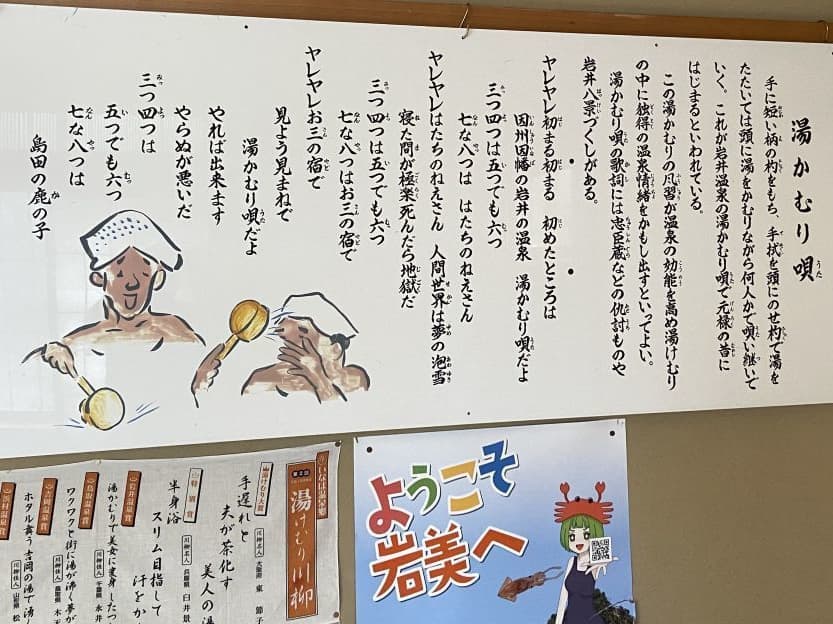 湯かむり唄
手に短い柄の杓をもち、手拭を頭にのせ杓で湯を
たたいては頭に湯をかむりながら何人かで唄い継いで
いく。これが岩井温泉の湯かむり唄で元禄の昔に
はじまるといわれている。
この湯かむりの風習が温泉の効能を高め湯けむり
の中に独得の温泉情緒をかもし出すといってよい。
湯かむり唄の歌詞には忠臣蔵などの仇討ものや
岩井八景づくしがある。
ヤレヤレ初まる初まる 初めたところは
因州因幡の岩井の温泉 湯かむり唄だよ
三つ四つは五つでも六つ
七な八つは はたちのねえさん
ヤレヤレはたちのねえさん 人間世界は夢の泡雪
寝た間が極楽死んだら地獄だ
三つ四つは五つでも六つ
七な八つはお三の宿で
ヤレヤレお三の宿で
見よう見まねで
湯かむり唄だよ
やれば出来ます
やらぬが悪いだ
三つ四つは
五つでも六つ
七な八つは
島田の鹿の子
湯けむり川柳
湯けむり大賞
手遅れと
夫が茶化す
美人の湯
川柳名人
大阪府 東 節子
特別賞
半身浴
スリム目指して
汗をか
川柳名人
兵庫県 臼井
岩井温泉賞
湯かむりで美女に変身したつ
川柳佳人
千葉県 永井
鳥取温泉賞
ワクワクと街に湯が沸く夢が
川柳佳人
鳥取県
吉岡温泉賞
ホタル舞う吉岡の湯で
川柳佳人
山形県 松
浜村温泉賞
ようこそ
岩美へ